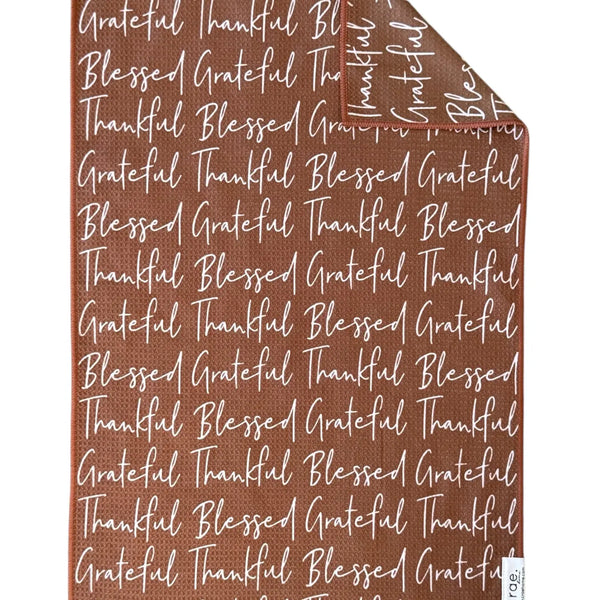 Grateful Thankful Bl
Thankful
Grateful
Blessed
Blessed Grateful
Thankful Blessed Grateful Thankful
Grateful Thankful Blessed Grateful
Blessed Grateful Thankful Blessed
Thankful Blessed Grateful Thankful
Grateful Thankful Blessed Grateful
Blessed Grateful Thankful Blessed
Thankful Blessed Grateful Thankful
Grateful Thankful Blessed Grateful
Thankful Blessed Grateful Thankful
Grateful Thankful Blessed Grateful
rae.